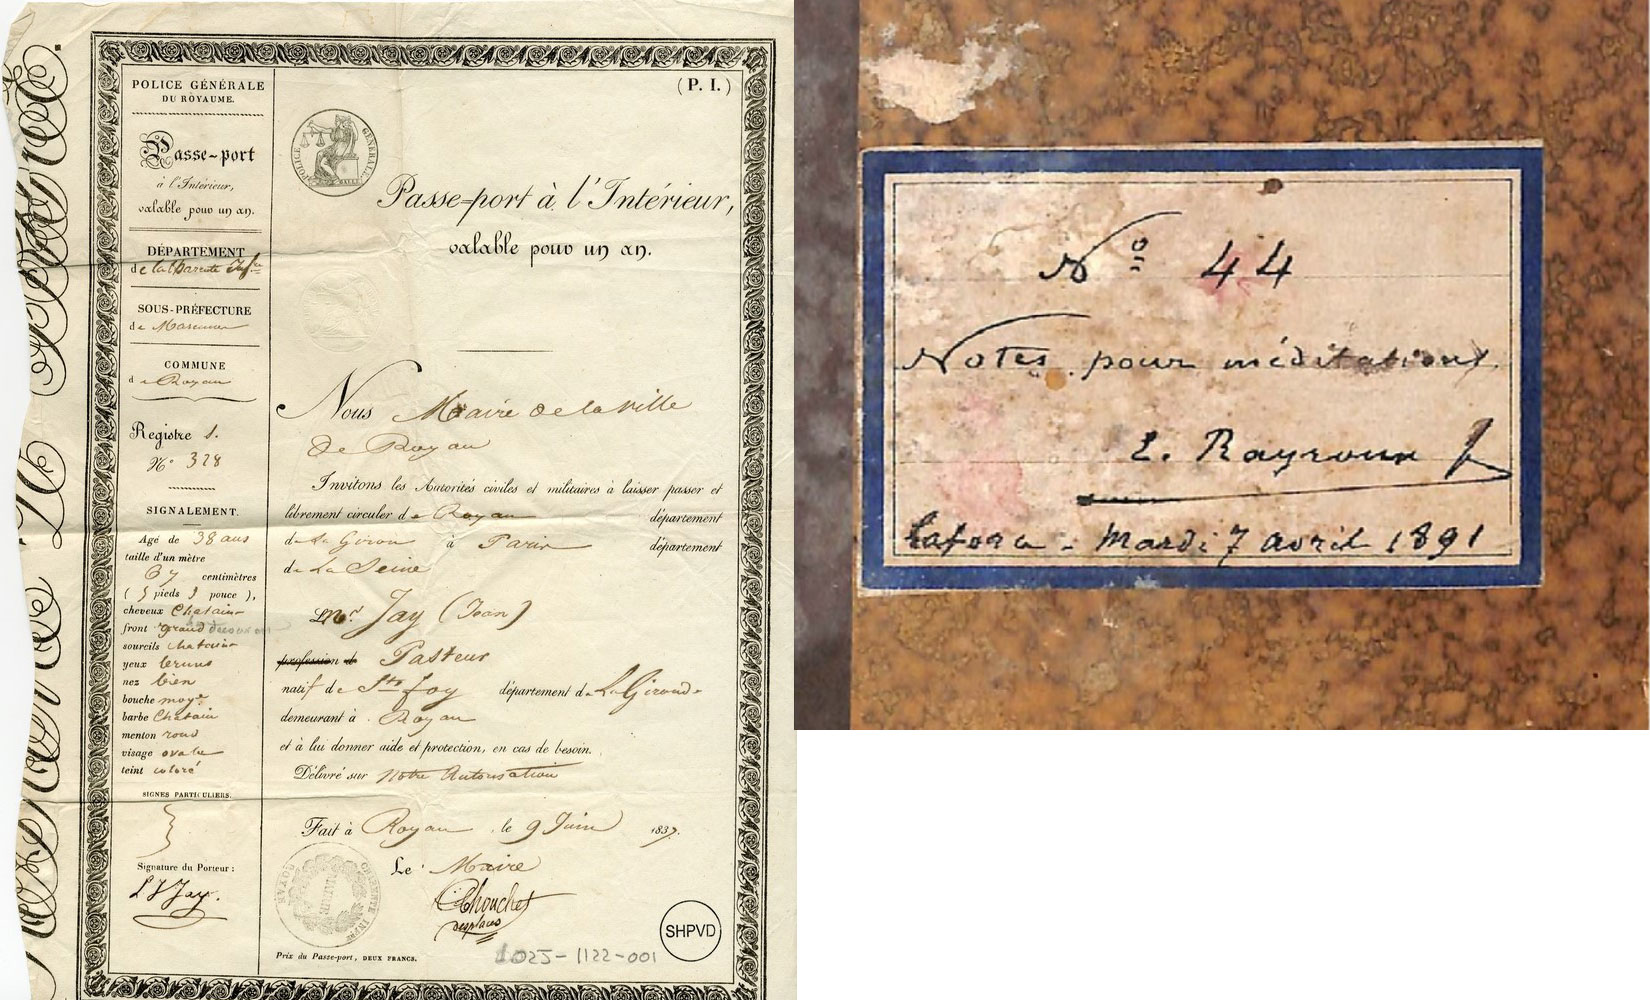 POLICE GÉNÉRALE
DU ROYAUME.
Passe-port
à l'Intérieur,
valable pour un an.
DÉPARTEMENT
de la Charente Infre
SOUS-PRÉFECTURE
de Marennes
COMMUNE
de Royan
Registre 1.
N° 328
SIGNALEMENT.
Agé de 38 ans
taille d'un mètre
67 centimètres
(5 pieds 1 pouce),
cheveux Chatain
front grand
sourcils chatain
yeux bruns
nez bien
bouche moye
barbe Chatain
menton rond
visage ovale
teint coloré
SIGNES PARTICULIERS.
Signature du Porteur :
Jay.
(P. I.)
POLICE GÉNÉRALE
Passe-port à l'Intérieur,
valable pour un an.
Nous Maire de la ville
de Royan
Invitons les Autorités civiles et militaires à laisser passer et
librement circuler de Royan département
de la Giron à Paris département
de La Seine
Mr. Jay (Jean)
profession de Pasteur
natif de Ste foy département de La Gironde
demeurant à Royan
et à lui donner aide et protection, en cas de besoin.
Délivré sur Notre Autorisation
Fait à Royan le 9 Juin 1837.
Le Maire
Chouchet
desplaces
MAIRIE
Prix du Passe-port, DEUX FRANCS.
SHPVD
1025-1122-001
N° 44
Notes pour méditations.
E. Rayroux
Laforce - Mardi 7 avril 1891